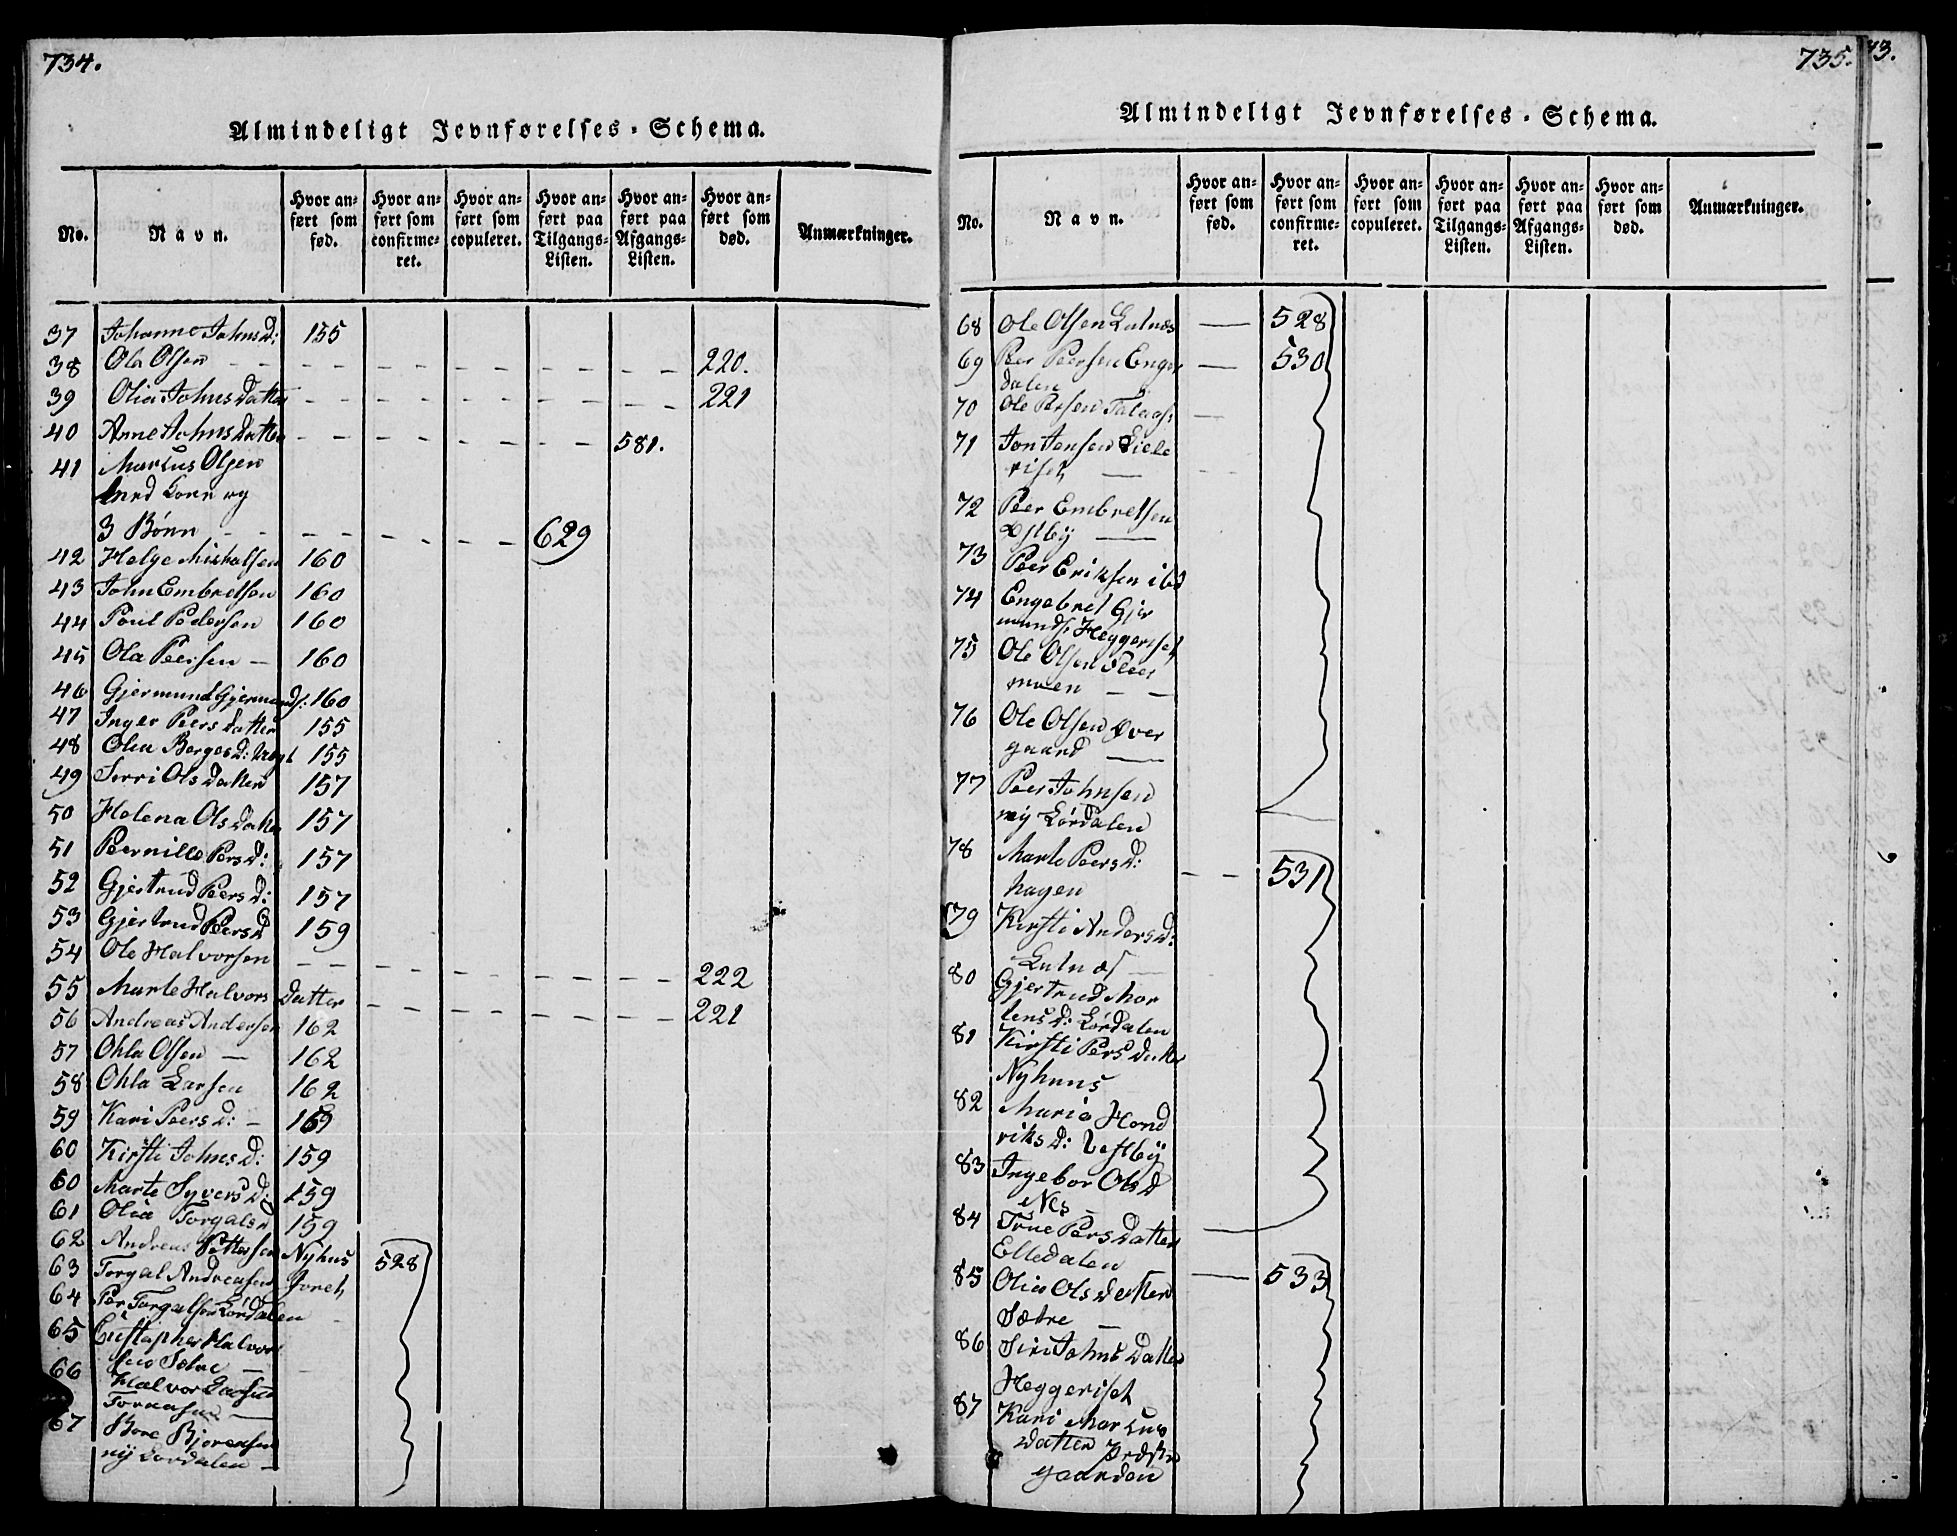 734.
Almindeligt Jevnførelses-Schema.
No. Navn. Hvor anført som fød. Hvor anført som confirmeret. Hvor anført som copuleret. Hvor anført paa Tilgangs-Listen. Hvor anført paa Afgangs-Listen. Hvor anført som død. Anmærkninger.
37 Johanne Johnsd: 155
38 Ole Olsen - - - - - - 220.
39 Olia Johnsdatter - - - - - 221
40 Anne Johnsdatter - - - - 581.
41 Markus Olsen
med Kone og
3 Børn - - - - 629
42 Helge Mikkelsen 160
43 John Embretsen 160
44 Poul Pedersen 160
45 Ola Peersen - 160
46 Gjermund Gjermunds: 160
47 Inger Peersdatter 155
48 Olea Bergesd: 155
49 Serri Olsdatter 157
50 Helena Olsdatter 157
51 Peernille Persd: 157
52 Gjertrud Peersd: 157
53 Gjertrud Peersd 159
54 Ole Halvorsen - - - - - 222
55 Marte Halvorsdatter - - - - 221
56 Andreas Andersen 162
57 Ohla Olsen — 162
58 Ohla Larsen 162
59 Kari Peersd: - 159
60 Kirsti Johnsd: 159
60 Marte Syversd: 159
61 Olia Torgalsd 159
62 Andreas Pettersen Nyhus 528
63 Torgal Andreasen Joret
64 Per Torgalsen Lørdalen
65 Cristopher Halvor
sen Sætre —
66 Halvor Larsen
67 Bore Bjørensen
ny Lørdalen -
735.
Almindeligt Jevnførelses-Schema.
No. Navn. Hvor anført som fød. Hvor anført som confirmeret. Hvor anført som copuleret. Hvor anført paa Tilgangs-Listen. Hvor anført paa Afgangs-Listen. Hvor anført som død. Anmærkninger.
68 Ole Olsen Lutnæs — 528
69 Peer Peersen Enger — 530
dalen
70 Ole Persen —
71 Jon Jensen Lille
riset —
72 Peer Embretsen
Østby —
73 Peer Eriksen ibd
74 Engebret Gjer
munds: Heggeriset
75 Ole Olsen
moen - -
76 Ole Olsen Øver
gaard —
77 Peer Johnsen
ny Lørdalen
78 Marte Peersd: - - 531
hagen
79 Kirsti Andersd:
Lutnæs —
80 Gjertrud Mor
tensd: Lørdalen
81 Kirsti Persdatter
Nyhuus
82 Maria Hend
riksd: Østby
83 Ingebor Olsd
Nes -
84 Trne Persdatter —
Elledalen
85 Olia Olsdatter — 533
Sætre —
86 Siri Johnsdatter
Heggeriset
87 Kari Markus
datter Præste
gaarden